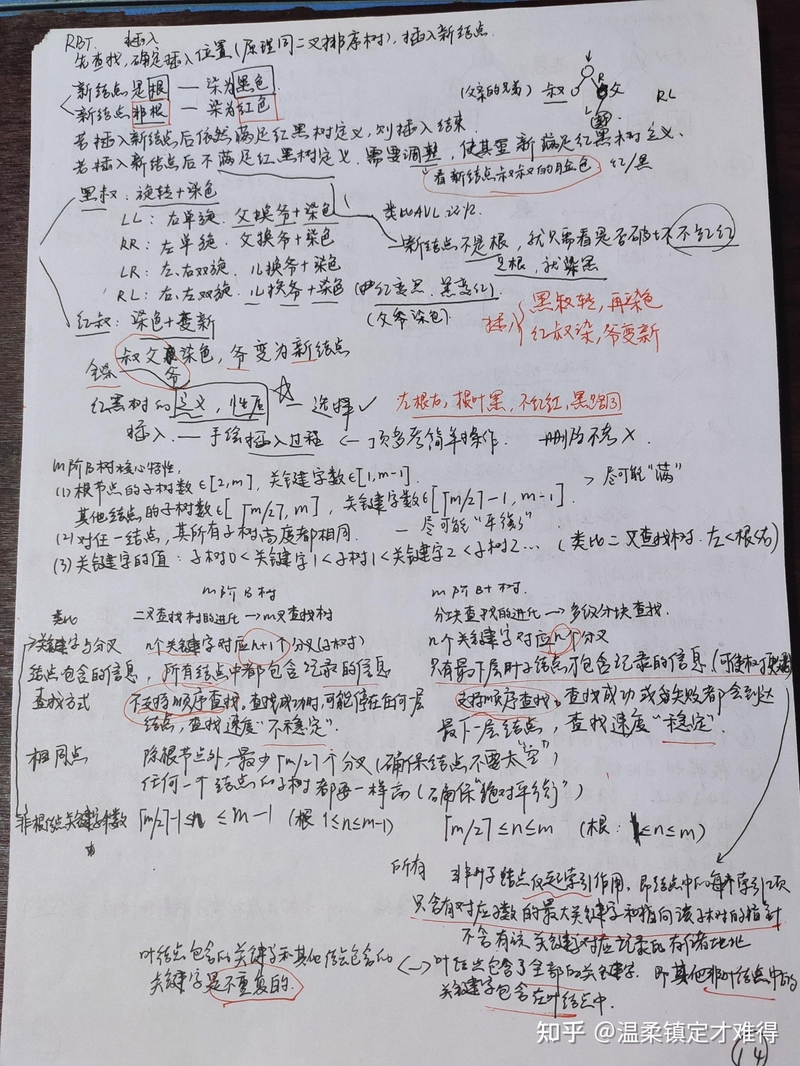 RBT. 插入
先查找,确定插入位置(原理同二叉排序树),插入新结点.
新结点是根 — 染为黑色
新结点非根 — 染为红色
(父亲的兄弟) 叔 父
R
L
RL
若插入新结点后依然满足红黑树定义,则插入结束.
若插入新结点后不满足红黑树定义.需要调整,使其重新满足红黑树定义.
看新结点叔叔的颜色 红/黑
黑叔:旋转+染色
类比AVL
LL:右单旋.父换爷+染色
RR:左单旋.父换爷+染色
LR:左、右双旋.儿换爷+染色
RL:右、左双旋.儿换爷+染色
新结点不是根,就只需看是否破坏不红红
是根,就染黑
(红变黑.黑变红)
红叔:染色+变新
(父爷染色)
叔父爷染色,爷变为新结点
插 黑叔转,再染色
红叔染,爷变新
红黑树的定义,性质 — 选择✓
左根右,根叶黑,不红红,黑路同
插入. — 手绘插入过程 ← 顶多考简单操作. 删除不考×.
m阶B树核心特性.
(1)根节点的子树数∈[2,m],关键字数∈[1,m-1].
其他结点的子树数∈[⌈m/2⌉,m],关键字数∈[⌈m/2⌉-1,m-1].
> 尽可能"满"
(2)对任一结点,其所有子树高度都相同. — 尽可能"平衡"
(3)关键字的值:子树0<关键字1<子树1<关键字2<子树2… (类比二叉查找树.左<根<右)
m阶B树 m阶B+树.
类比 二叉查找树的进化→m叉查找树 分块查找的进化→多级分块查找.
关键字与分叉 n个关键字对应n+1个分叉(子树) n个关键字对应n个分叉
结点包含的信息,所有结点中都包含记录的信息 只有最下层叶子结点才包含记录的信息
查找方式 不支持顺序查找.查找成功时,可能停在任何一层 支持顺序查找.查找成功或失败都会到达
结点,查找速度"不稳定". 最下一层结点,查找速度"稳定".
相同点 除根节点外,最少⌈m/2⌉个分叉(确保结点不要太"空")
任何一个结点的子树都要一样高(确保"绝对平衡")
非根结点关键字个数 ⌈m/2⌉-1≤n≤m-1 (根 1≤n≤m-1) ⌈m/2⌉≤n≤m (根:1≤n≤m)
所有 非叶子结点仅起索引作用.即结点中的每个索引项
只含有对应子树的最大关键字和指向该子树的指针
不含有该关键字对应记录的存储地址
叶结点包含的关键字和其他结点包含的 ↔ 叶结点包含了全部的关键字.即其他非叶结点中的
关键字是不重复的. 关键字包含在叶结点中.
知乎 @温柔镇定才难得
14